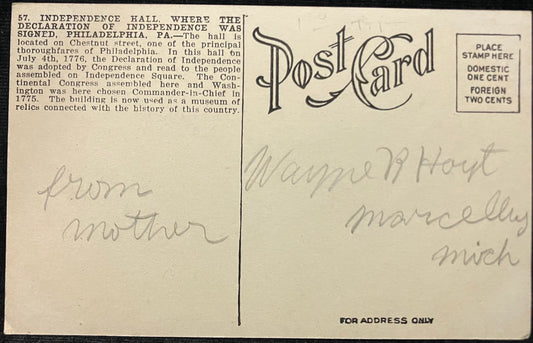 57. INDEPENDENCE HALL, WHERE THE
DECLARATION OF INDEPENDENCE WAS
SIGNED, PHILADELPHIA, PA.—The hall is
located on Chestnut street, one of the principal
thoroughfares of Philadelphia. In this hall on
July 4th, 1776, the Declaration of Independence
was adopted by Congress and read to the people
assembled on Independence Square. The Con-
tinental Congress assembled here and Wash-
ington was here chosen Commander-in-Chief in
1775. The building is now used as a museum of
relics connected with the history of this country.
Post Card
PLACE
STAMP HERE
DOMESTIC
ONE CENT
FOREIGN
TWO CENTS
from
mother
Wayne R Hoyt
marcellus
mich
FOR ADDRESS ONLY